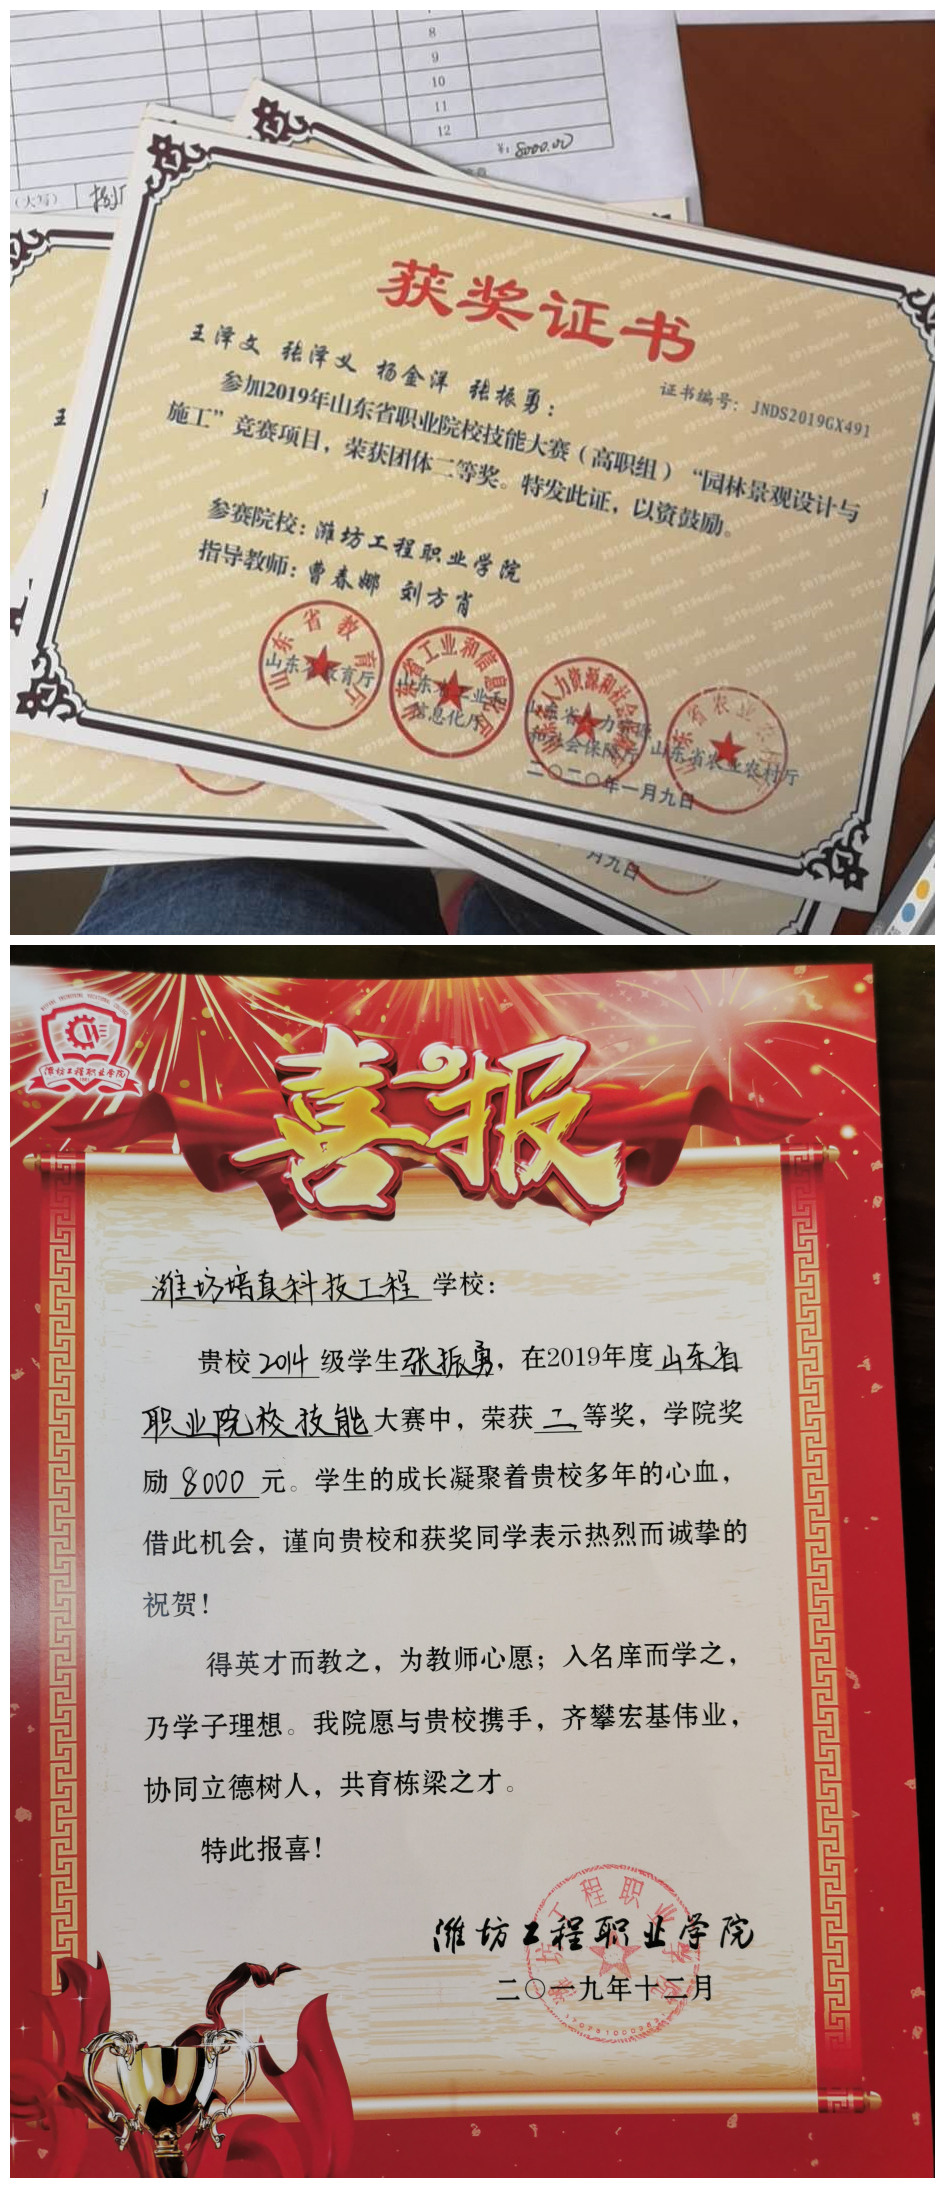 8
9
10
11
12
¥: 8000.00
(大写)
获奖证书
证书编号: JNDS2019GX491
王泽文 张泽义 杨金洋 张振勇:
参加2019年山东省职业院校技能大赛(高职组)“园林景观设计与
施工”竞赛项目, 荣获团体二等奖。特发此证, 以资鼓励。
参赛院校: 潍坊工程职业学院
指导教师: 曹春娜 刘方肖
山东省教育厅
山东省工业和
信息化厅
山东省人力资源
和社会保障厅
山东省农业农村厅
二〇二〇年一月九日
月九日
王
潍坊工程职业学院
喜报
潍坊培真科技工程学校:
贵校2014级学生张振勇, 在2019年度山东省
职业院校技能大赛中, 荣获二等奖, 学院奖
励8000元。学生的成长凝聚着贵校多年的心血,
借此机会, 谨向贵校和获奖同学表示热烈而诚挚的
祝贺!
得英才而教之, 为教师心愿; 入名庠而学之,
乃学子理想。我院愿与贵校携手, 齐攀宏基伟业,
协同立德树人, 共育栋梁之才。
特此报喜!
潍坊工程职业学院
二〇一九年十二月